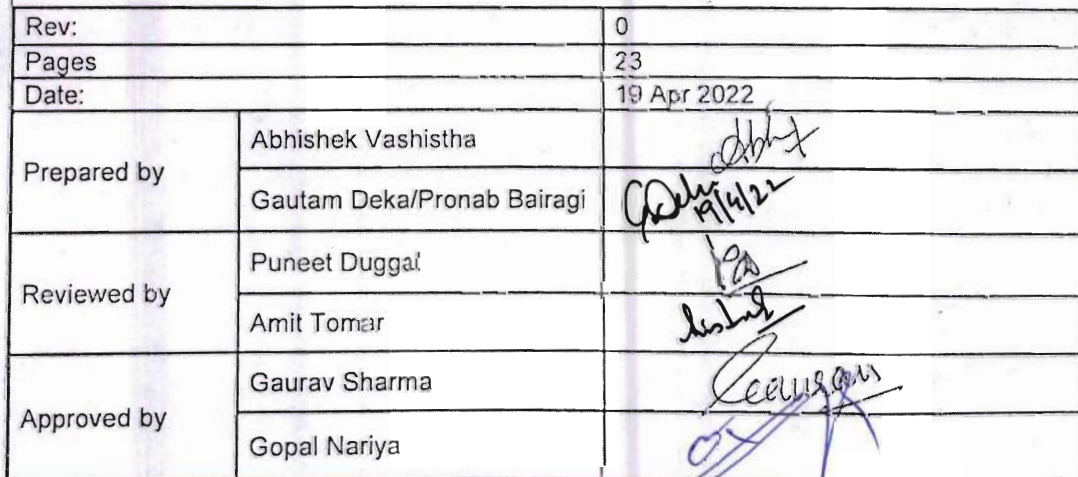 Rev: 0
Pages 23
Date: 19 Apr 2022
Prepared by
Abhishek Vashistha
Gautam Deka/Pronab Bairagi
GDeka 19/4/22
Reviewed by
Puneet Duggal
Amit Tomar
Approved by
Gaurav Sharma
Gopal Nariya